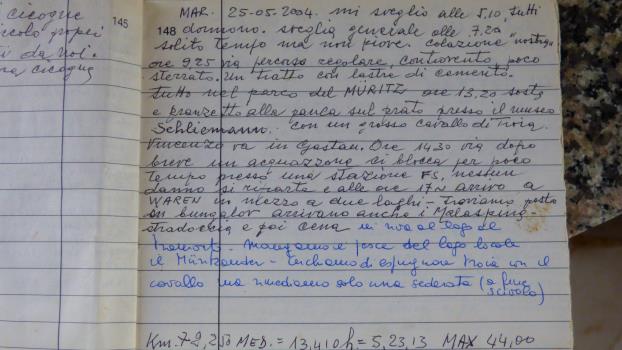 cicogne
145
MAR. 25-05-2004. mi sveglio alle 5.10, tutti
148 dormono. sveglia generale alle 7.20
solito tempo ma non piove. colazione "nostra"
ore 9,25 via percorso regolare, controvento poco
sterrato. Un tratto con lastre di cemento.
tutto nel parco del MURITZ ore 13,20 sosta
e pranzetto alla panca sul prato presso il museo
Schliemann. con un grosso cavallo di Troia.
Vincenzo va in Ore 1430 via dopo
breve un acquazzone ci blocca per poco
tempo presso una stazione FS, nessun
danno si riparte e alle ore 17 arrivo a
WAREN in mezzo a due laghi - troviamo posto
in bungalov arrivano anche i Malaspina
e poi cena in riva al lago al
- mangiamo il pesce del lago locale
il - cerchiamo di espugnare Troia con il
cavallo ma rimediamo solo una (a fine
Km. 79,250 MED. = 13,410 h = 5,23,13 MAX 44,00